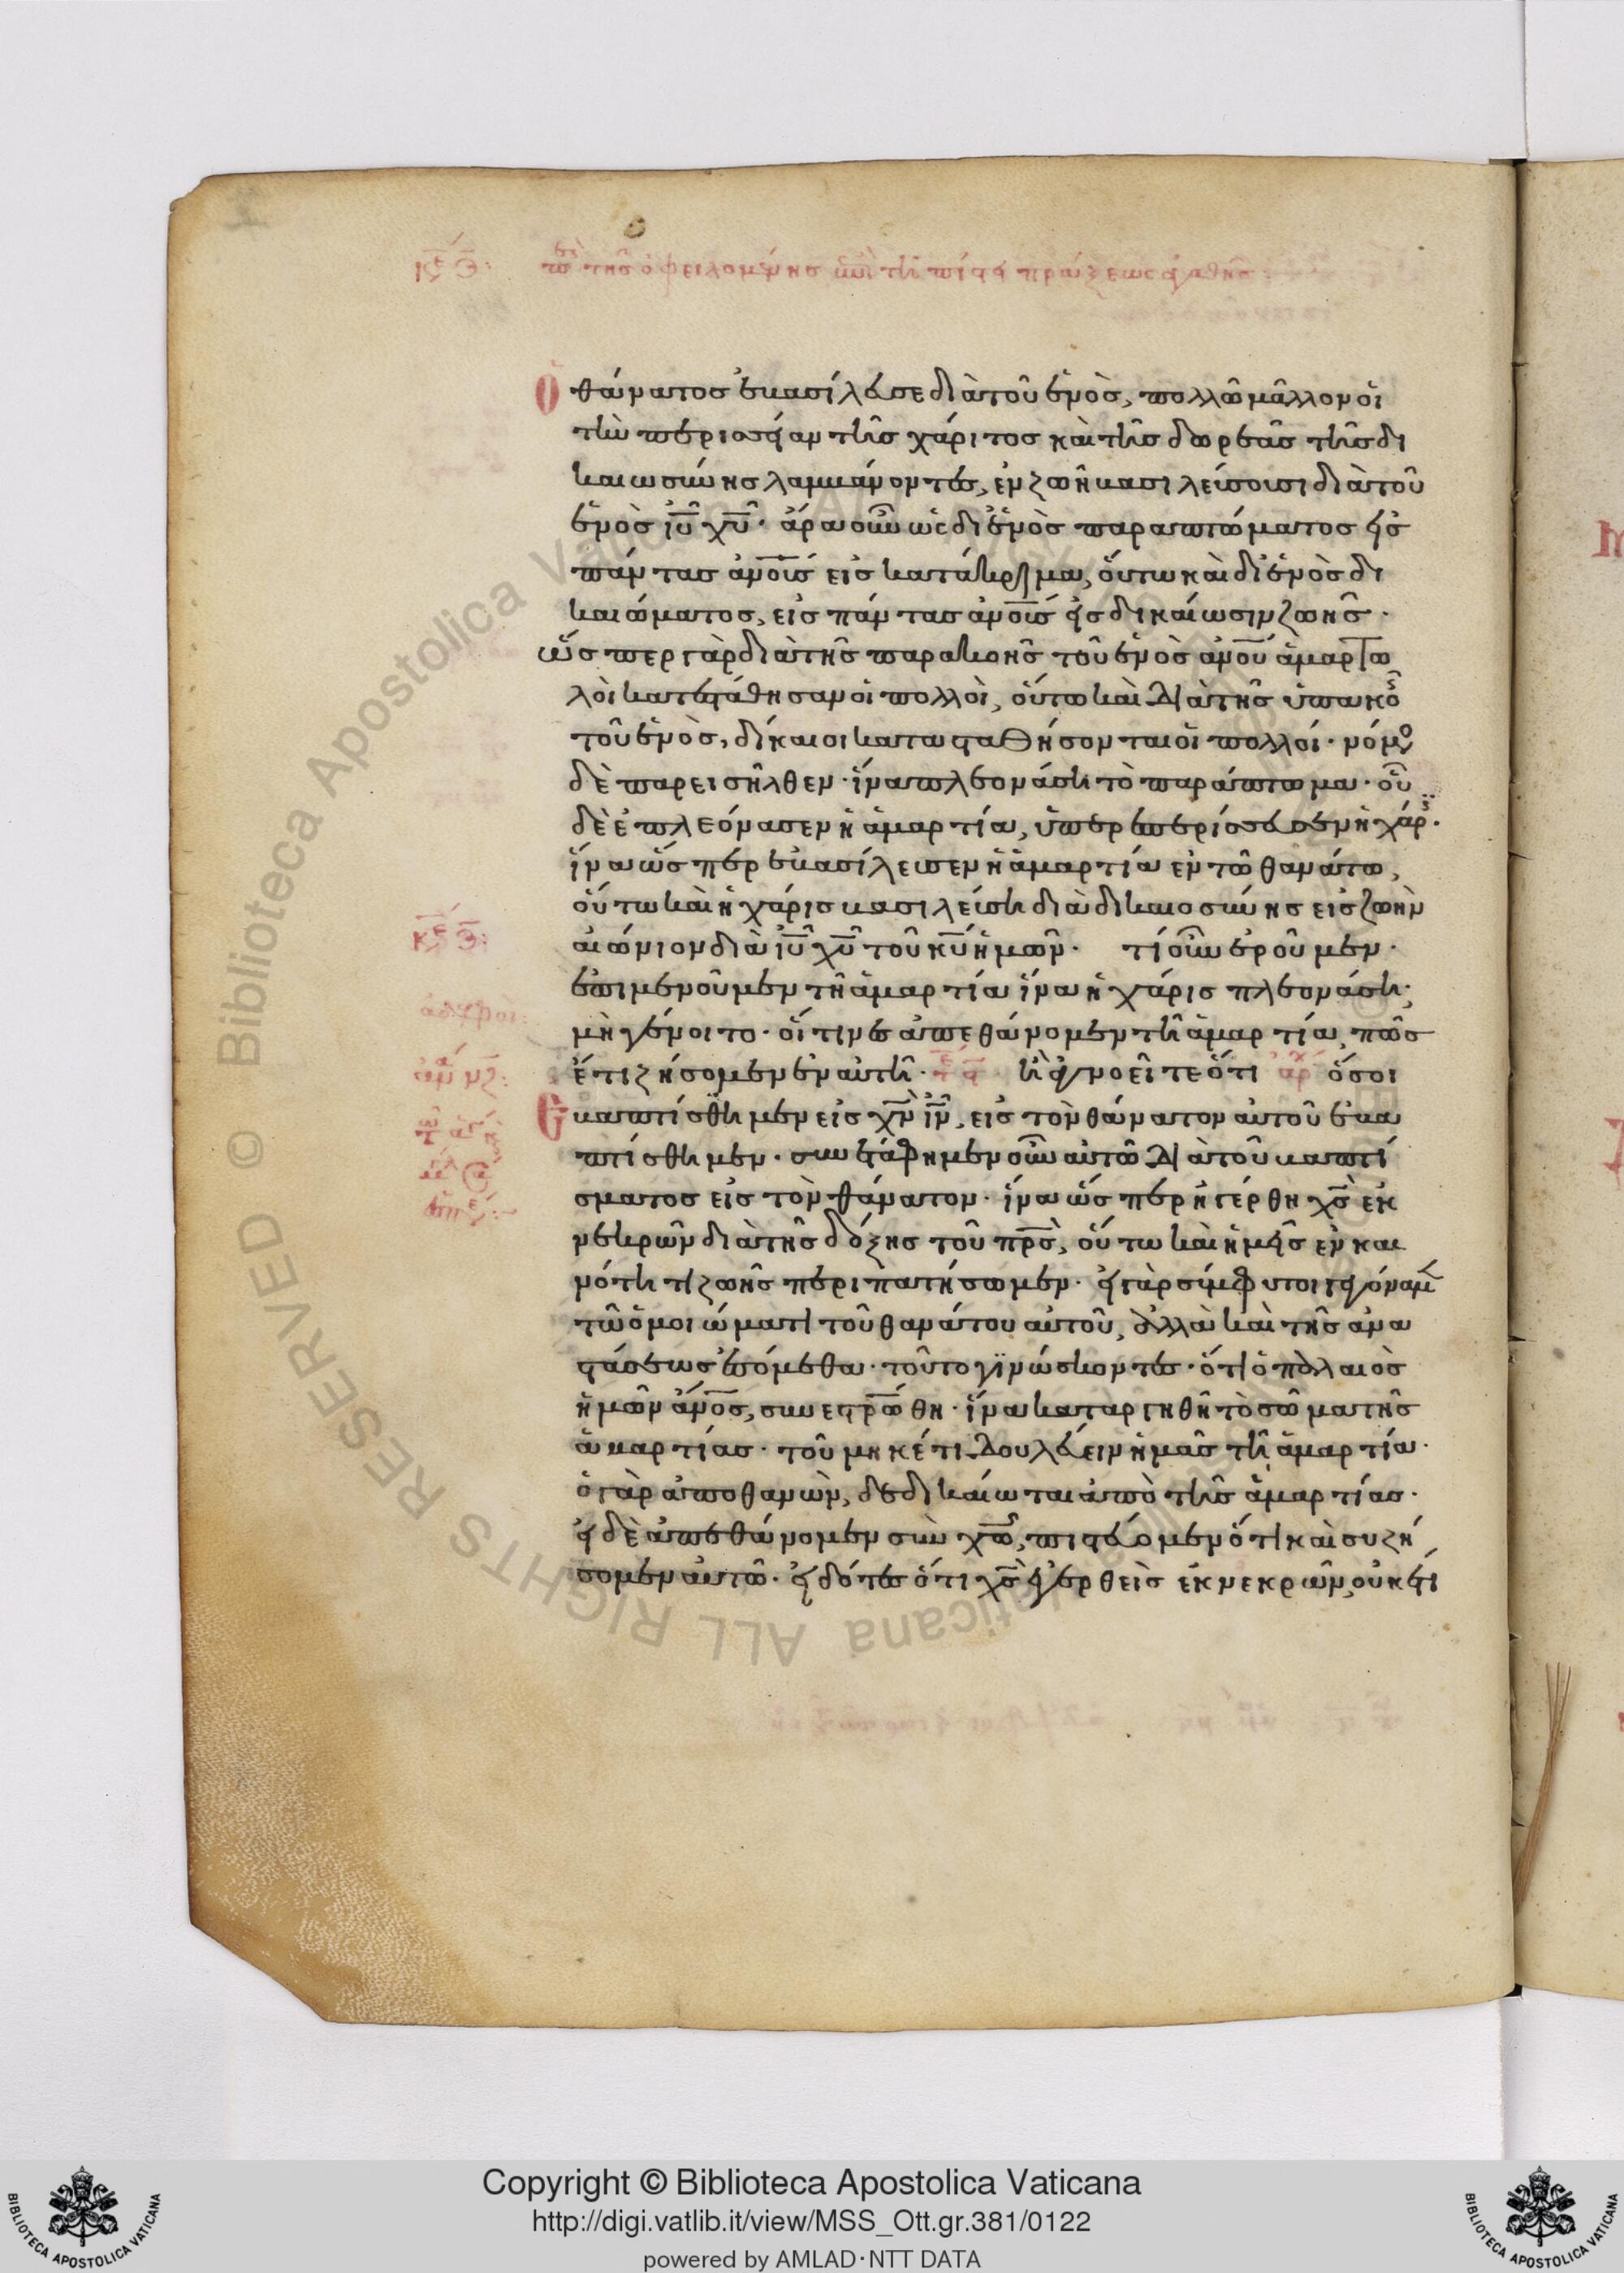 περὶ τῆς ὀφειλομένης ἐπὶ τῇ πίστει πράξεως ἀγαθῆς:
Ὁ θάνατος ἐβασίλευσε διὰ τοῦ ἑνὸς, πολλῶ μᾶλλον οἱ
τὴν περισσείαν τῆς χάριτος καὶ τῆς δωρεᾶς τῆς δι
καιωσύνης λαμβάνοντες, ἐν ζωῆ βασιλεύσουσι διὰ τοῦ
ἑνὸς ιυ χυ· ἄρα οὖν ὡς δι ἑνὸς παραπτώματος εἰς
πάντας ἀνους εἰς κατάκριμα, οὕτω καὶ δι ἑνὸς δι
καιώματος, εἰς πάντας ἀνους εἰς δικαίωσιν ζωῆς·
ὥσπερ γὰρ διὰ τῆς παρακοῆς τοῦ ἑνὸς ἀνου ἁμαρτω
λοὶ κατεστάθησαν οἱ πολλοὶ, οὕτω καὶ διὰ τῆς ὑπακοῆς
τοῦ ἑνὸς, δίκαιοι κατασταθήσονται οἱ πολλοί· νόμος
δὲ παρεισῆλθεν· ἵνα πλεονάση τὸ παράπτωμα· οὗ
δὲ ἐπλεόνασεν ἡ ἁμαρτία, ὑπερεπερίσσευσεν ἡ χάρις·
ἵνα ὥσπερ ἐβασίλευσεν ἡ ἁμαρτία ἐν τῶ θανάτω,
οὕτω καὶ ἡ χάρις βασιλεύση διὰ δικαιοσύνης εἰς ζωὴν
αἰώνιον διὰ ιυ χυ τοῦ κυ ἡμῶν· τί οὖν ἐροῦμεν·
ἐπιμενοῦμεν τῆ ἁμαρτία ἵνα ἡ χάρις πλεονάση·
μὴ γένοιτο· οἵτινες ἀπεθάνομεν τῆ ἁμαρτία, πῶς
ἔτι ζήσομεν ἐν αὐτῆ· ἢ ἀγνοεῖτε ὅτι ἀρ ὅσοι
ἐβαπτίσθημεν εἰς χν ιν, εἰς τὸν θάνατον αὐτοῦ ἐβα
πτίσθημεν· συνετάφημεν οὖν αὐτῶ διὰ τοῦ βαπτί
σματος εἰς τὸν θάνατον· ἵνα ὥσπερ ἠγέρθη χς ἐκ
νεκρῶν διὰ τῆς δόξης τοῦ πρς, οὕτω καὶ ἡμεῖς ἐν και
νότητι ζωῆς περιπατήσωμεν· εἰ γὰρ σύμφυτοι γεγόναμεν
τῶ ὁμοιώματι τοῦ θανάτου αὐτοῦ, ἀλλὰ καὶ τῆς ἀνα
στάσεως ἐσόμεθα· τοῦτο γινώσκοντες· ὅτι ὁ παλαιὸς
ἡμῶν ἀνος, συνεστρώθη· ἵνα καταργηθῆ τὸ σῶμα τῆς
ἁμαρτίας· τοῦ μηκέτι δουλεύειν ἡμᾶς τῆ ἁμαρτία·
ὁ γὰρ ἀποθανὼν, δεδικαίωται ἀπὸ τῆς ἁμαρτίας·
εἰ δὲ ἀπεθάνομεν σὺν χω, πιστεύομεν ὅτι καὶ συζή
σομεν αὐτῶ· εἰδότες ὅτι χς ἐγερθεὶς ἐκ νεκρῶν, οὐκέτι
© Biblioteca Apostolica Vaticana
ALL RIGHTS RESERVED
Copyright © Biblioteca Apostolica Vaticana
http://digi.vatlib.it/view/MSS_Ott.gr.381/0122
powered by AMLAD·NTT DATA
BIBLIOTECA APOSTOLICA VATICANA
BIBLIOTECA APOSTOLICA VATICANA